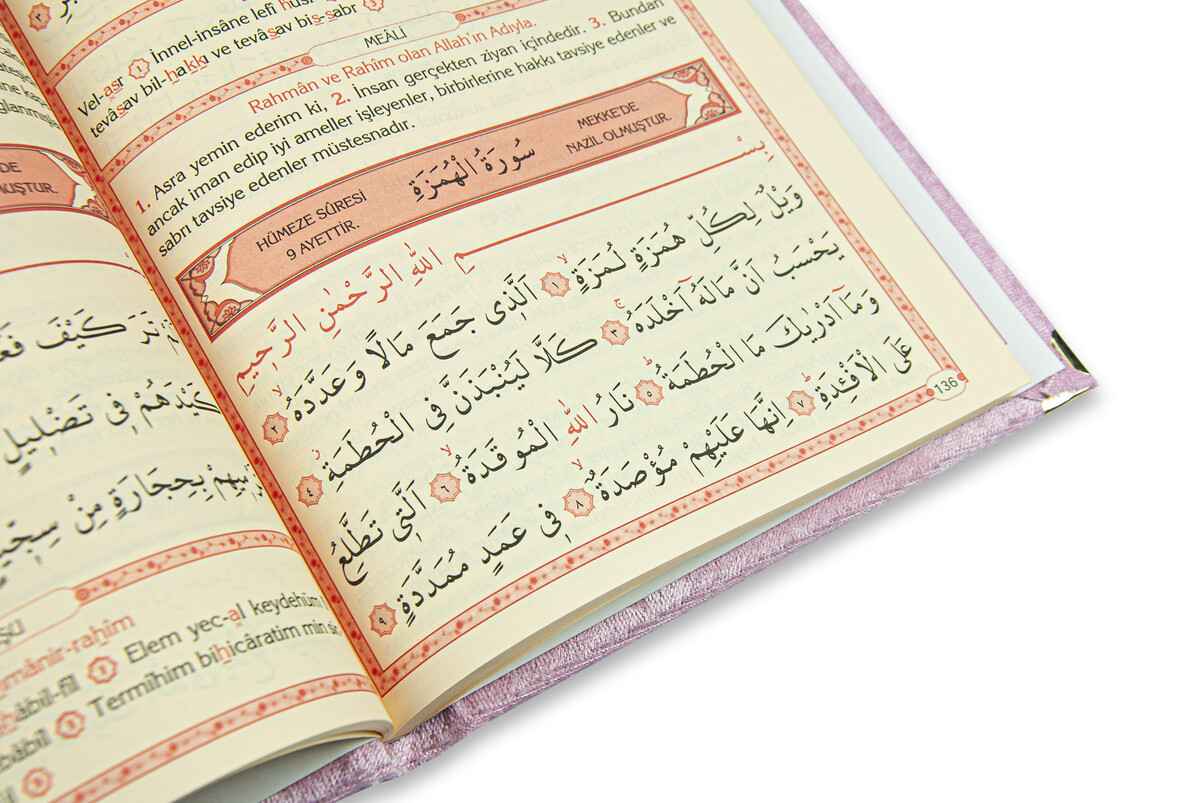 Vel-asr ① İnnel-insâne lefî husr
tevâsav bil-hakkı ve tevâsav bis-sabr ③
MEÂLİ
Rahmân ve Rahîm olan Allah'ın Adıyla.
1. Asra yemin ederim ki, 2. İnsan gerçekten ziyan içindedir. 3. Bundan
ancak iman edip iyi ameller işleyenler, birbirlerine hakkı tavsiye edenler ve
sabrı tavsiye edenler müstesnadır.
HÜMEZE SÛRESİ
9 AYETTİR.
سُورَةُ الْهُمَزَةِ
MEKKE'DE
NAZİL OLMUŞTUR.
بِسْمِ اللّٰهِ الرَّحْمٰنِ الرَّحِيمِ
وَيْلٌ لِكُلِّ هُمَزَةٍ لُمَزَةٍۙ ﴿١﴾ اَلَّذِى جَمَعَ مَالًا وَعَدَّدَهُۙ ﴿٢﴾
يَحْسَبُ اَنَّ مَالَهُٓ اَخْلَدَهُۚ ﴿٣﴾ كَلَّا لَيُنْبَذَنَّ فِى الْحُطَمَةِۘ ﴿٤﴾
وَمَٓا اَدْرٰيكَ مَا الْحُطَمَةُۜ ﴿٥﴾ نَارُ اللّٰهِ الْمُوقَدَةُۙ ﴿٦﴾ اَلَّتِى تَطَّلِعُ
عَلَى الْاَفْـِٔدَةِۜ ﴿٧﴾ اِنَّهَا عَلَيْهِمْ مُؤْصَدَةٌۙ ﴿٨﴾ فِى عَمَدٍ مُمَدَّدَةٍ ﴿٩﴾
136
كَيْفَ
كَيْدَهُمْ فِى تَضْلِيلٍ
بِحِجَارَةٍ مِنْ
Elem yec-al keydehüm
Termîhim bihicâratim min